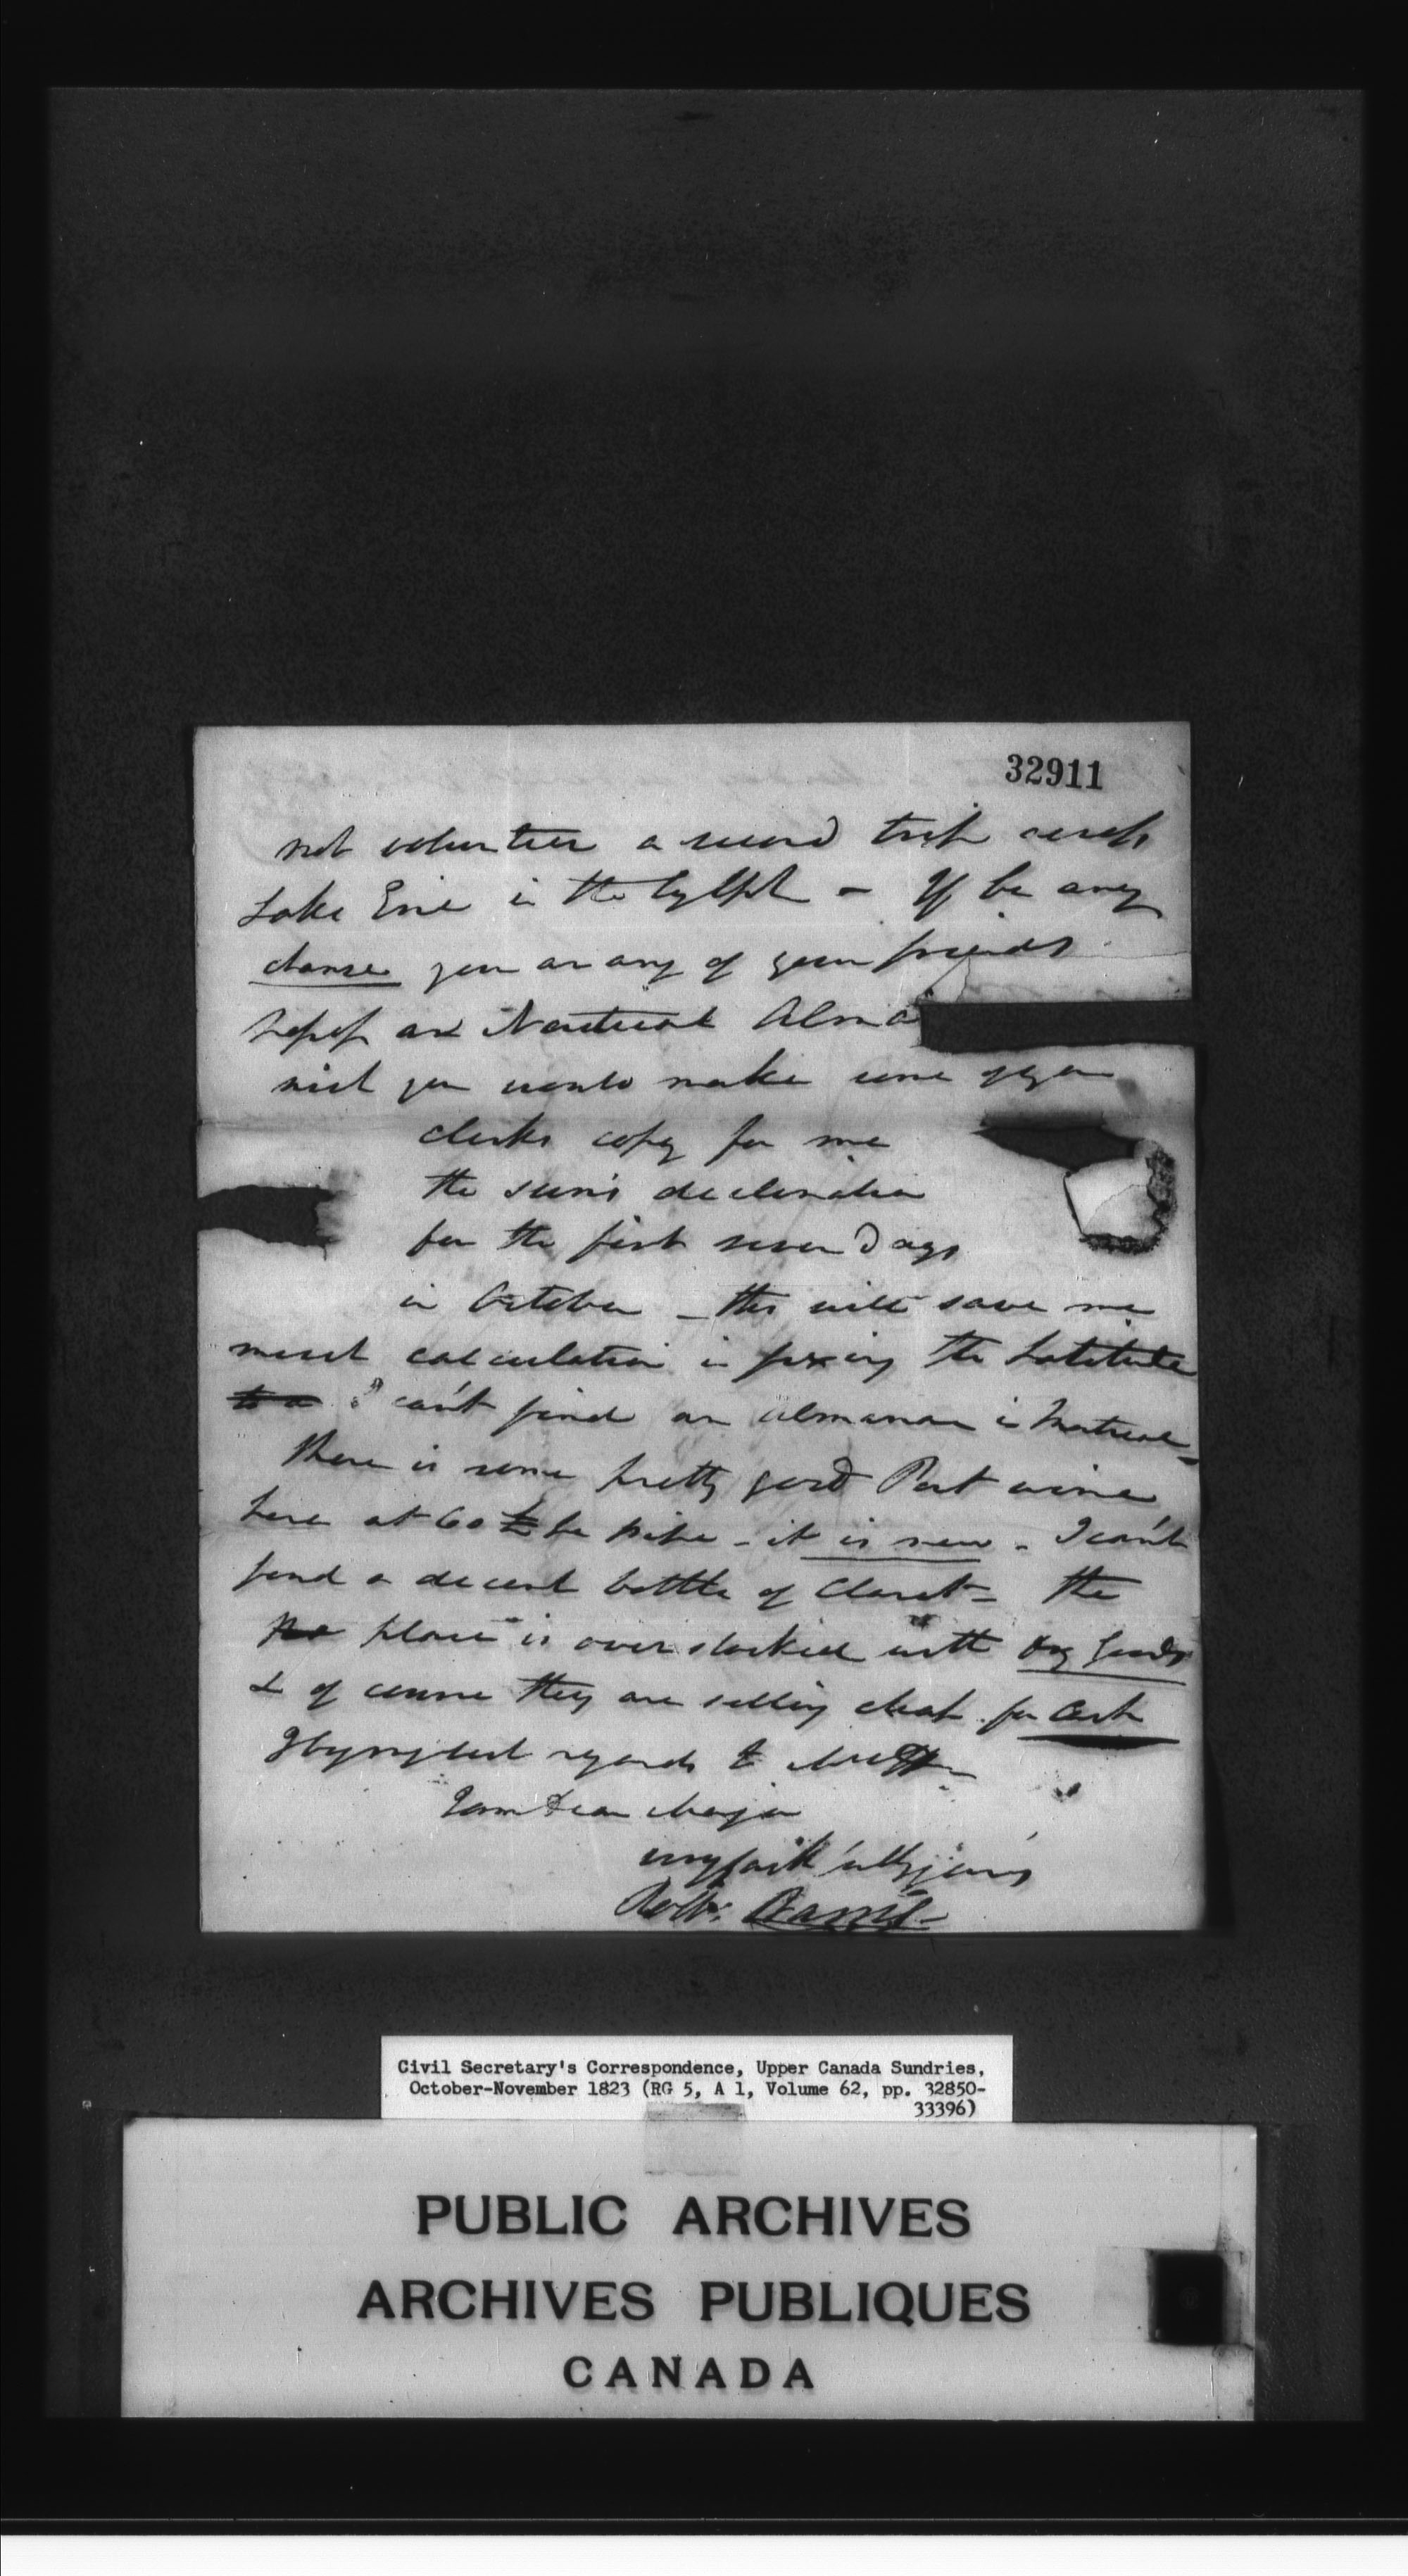 32911
not volunteer a second trip across
Lake Erie in the Sylph - If by any
chance you or any of your friends
possess a Nautical Alma
wish you would make some of your
clerks copy for me
the sun's declination
for the first seven days
in October - this will save me
much calculation in fixing the Latitude
I can't find an almanac in Montreal -
There is some pretty good Port wine
here at 60 £ pipe - it is new - I can't
find a decent bottle of Claret - the
place is over stocked with dry goods
& of course they are selling cheap for Cash
my best regards to
I am Dear Major
very faithfully yours
Robt.
Civil Secretary's Correspondence, Upper Canada Sundries,
October-November 1823 (RG 5, A 1, Volume 62, pp. 32850-
33396)
PUBLIC ARCHIVES
ARCHIVES PUBLIQUES
CANADA